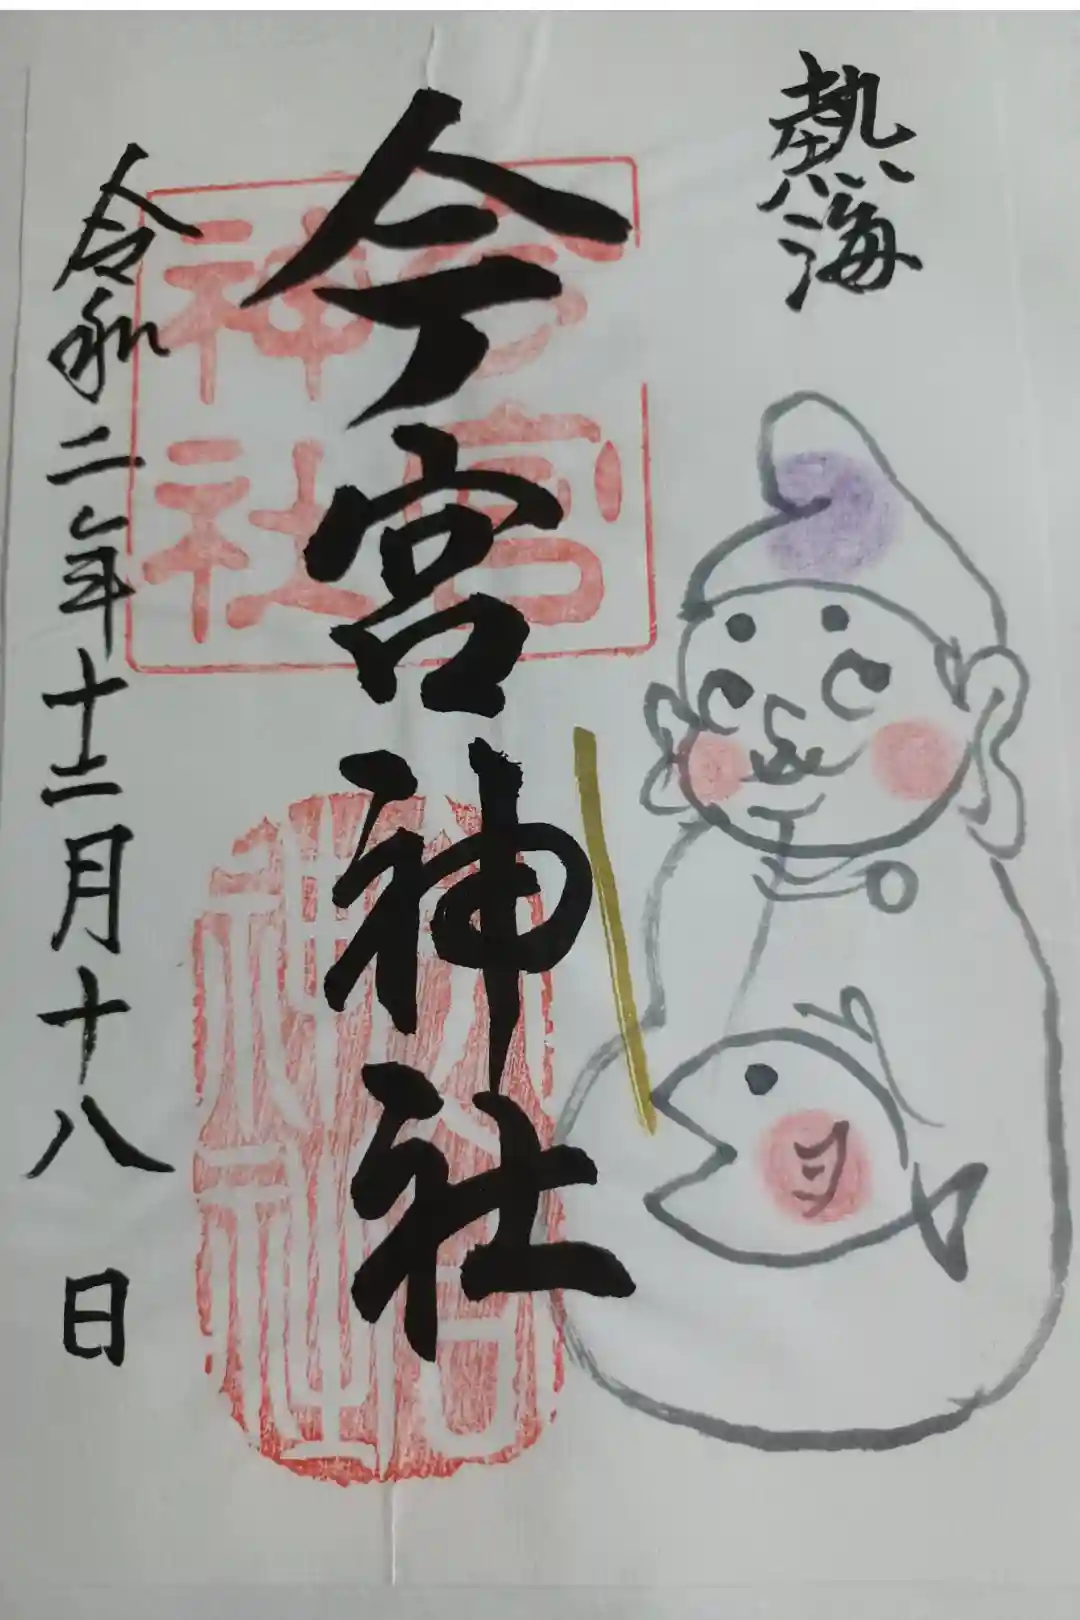 熱海
今宮神社
今宮神社
今宮神社
令和二年十二月十八日